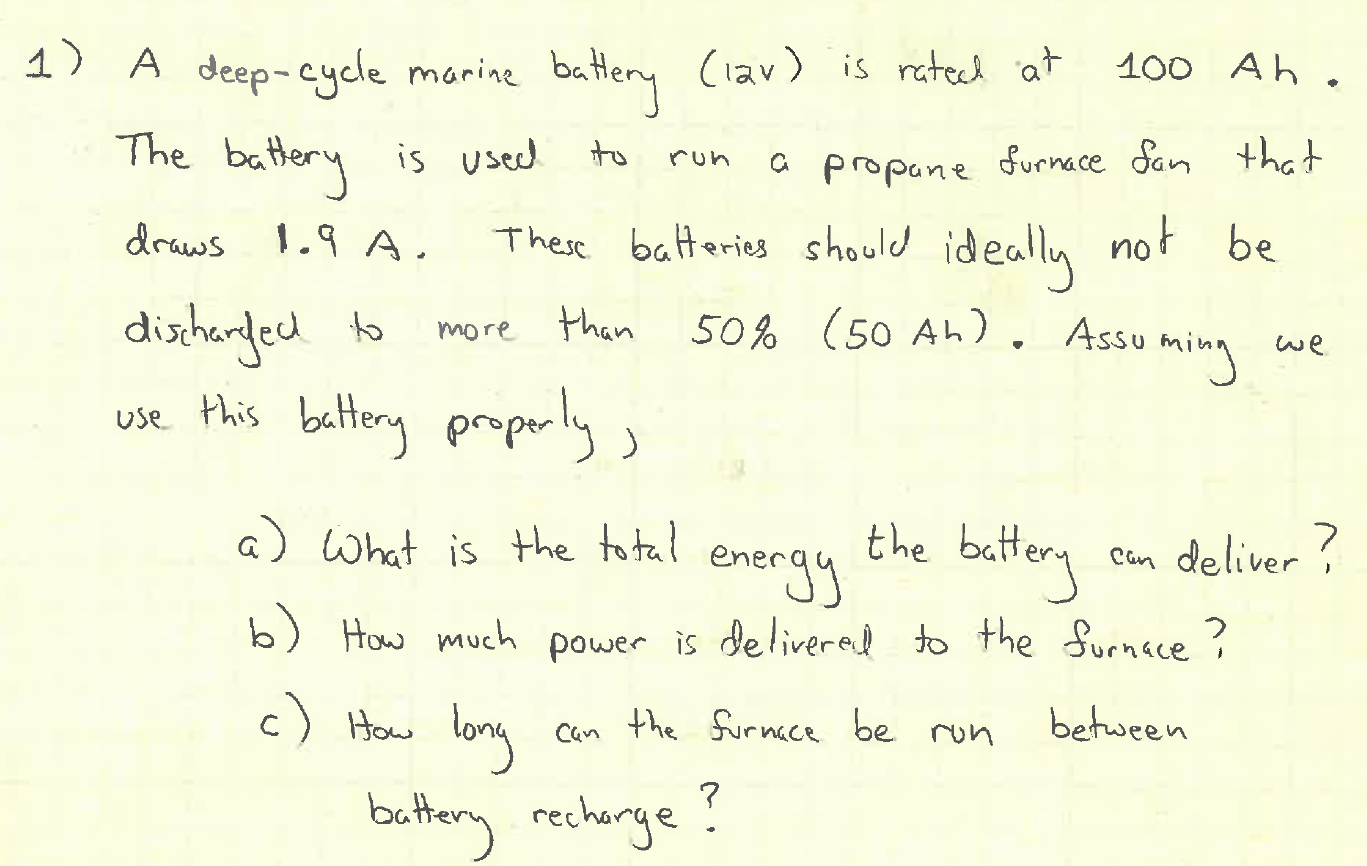 1) A deep-cycle marine battery (12v) is rated at 100 Ah.
The battery is used to run a propane furnace fan that
draws 1.9 A. These batteries should ideally not be
discharged to more than 50% (50 Ah). Assuming we
use this battery properly,
a) What is the total energy the battery can deliver?
b) How much power is delivered to the furnace?
c) How long can the furnace be run between
battery recharge?